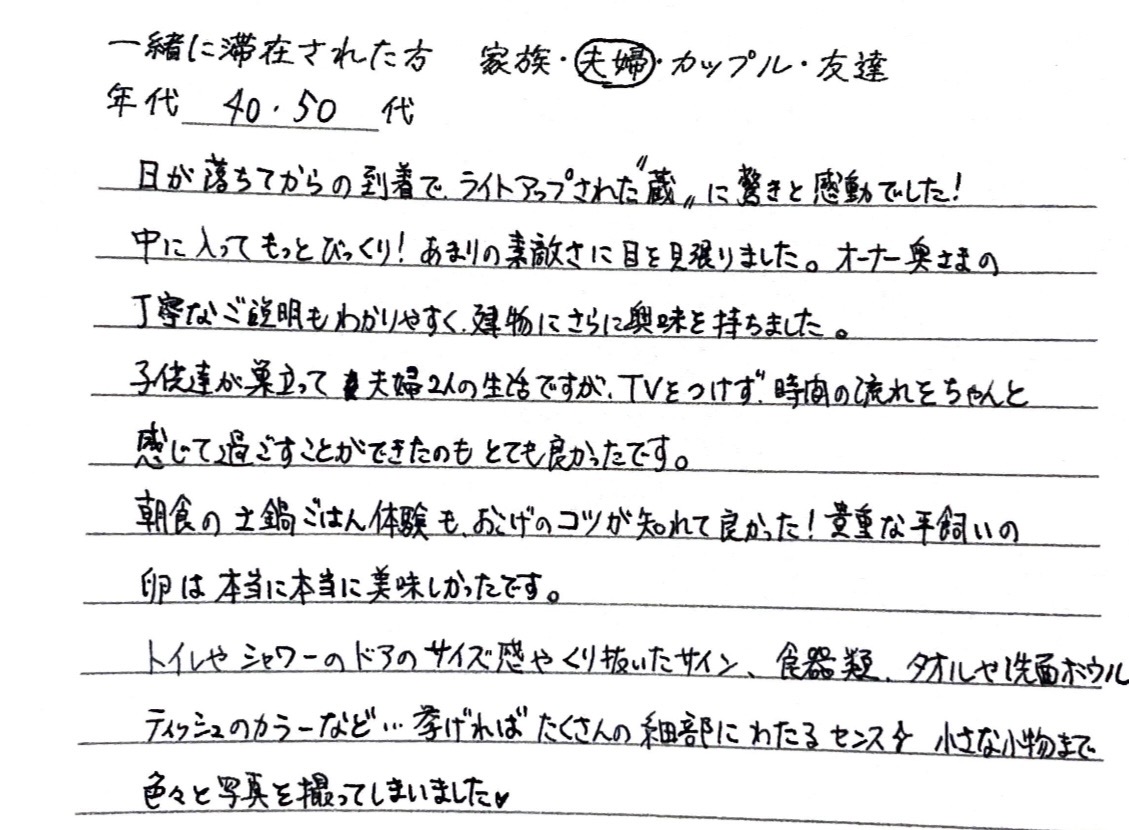 一緒に滞在された方　家族・夫婦・カップル・友達
年代 40・50 代
日が落ちてからの到着で、ライトアップされた〝蔵〟に驚きと感動でした！
中に入ってもっとびっくり！あまりの素敵さに目を見張りました。オーナー奥さまの
丁寧なご説明もわかりやすく、建物にさらに興味を持ちました。
子供達が巣立って夫婦2人の生活ですが、TVをつけず、時間の流れをちゃんと
感じて過ごすことができたのもとても良かったです。
朝食の土鍋ごはん体験も、おこげのコツが知れて良かった！貴重な平飼いの
卵は本当に本当に美味しかったです。
トイレやシャワーのドアのサイズ感やくり抜いたサイン、食器類、タオルや洗面ボウル
ティッシュのカラーなど…挙げればたくさんの細部にわたるセンス✧ 小さな小物まで
色々と写真を撮ってしまいました♥